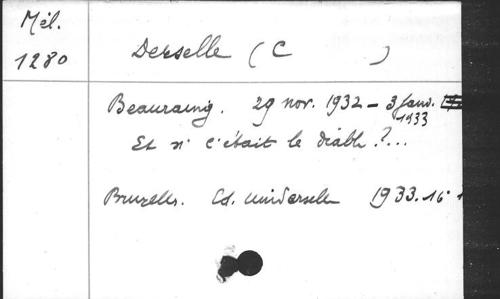 Mél.
1280
Derselle (C )
Beauraing. 29 nov. 1932 - 3 janv.
1933
Et si c'était le diable ?...
Bruxelles. Ed. universelle 1933. 16°